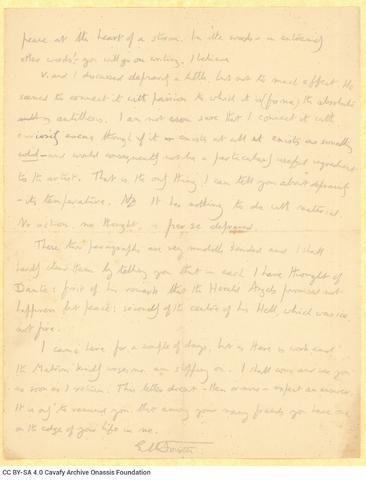 peace at the heart of a storm. In other words - in enlivening
other words! - you will go on writing, I believe.
V. and I discussed depravity a little, but not to much effect. He
seemed to connect it with passion to which it is (for me) the absolute
antithesis. I am not even sure that I connect it with
curiosity even though if it exists at all it exists as something
cold - and would consequently not be a particularly useful ingredient
to the artist. That is the only thing I can tell you about depravity
- its temperature. It has nothing to do with material.
No action, no thought, is per se depraved.
These two paragraphs are very muddle headed and I shall
hardly clear them by telling you that in each I have thought of
Dante: first of his remark that the Herald Angels promised not
happiness but peace; secondly of the centre of his Hell, which was ice
not fire.
I came here for a couple of days, but as there is work and
the Matron kindly urges me am stopping on. I shall come and see you
as soon as I return. This letter doesn't - then or now - expect an answer.
It is only to remind you that among your many friends you have one
on the edge of your life in me.
EMForster
CC BY-SA 4.0 Cavafy Archive Onassis Foundation